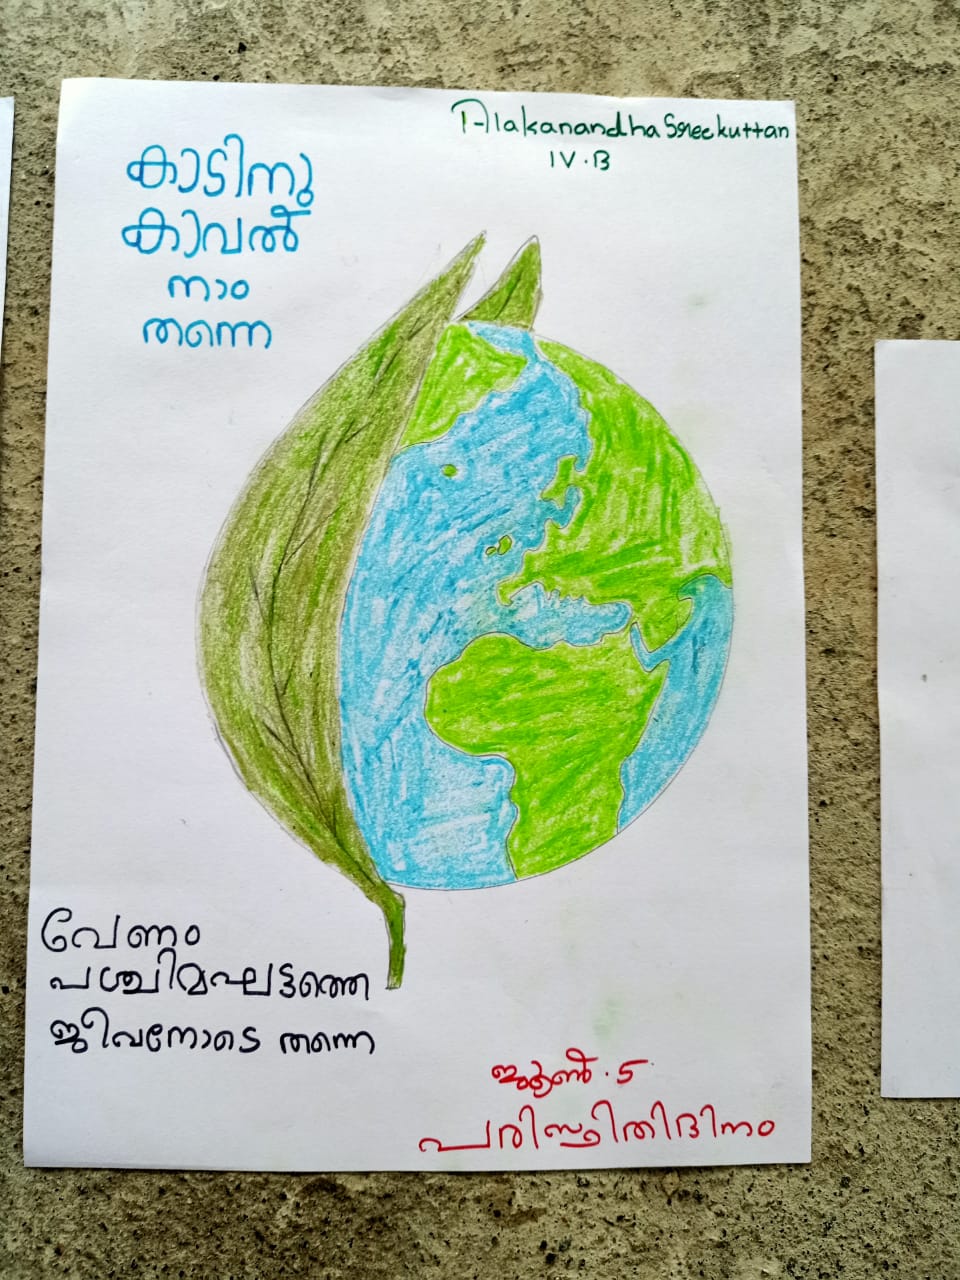 Alakanandha Sreekuttan
IV.B
കാടിനു
കാവൽ
നാം
തന്നെ
വേണം
പശ്ചിമഘട്ടത്തെ
ജീവനോടെ തന്നെ
ജൂൺ.5
പരിസ്ഥിതിദിനം